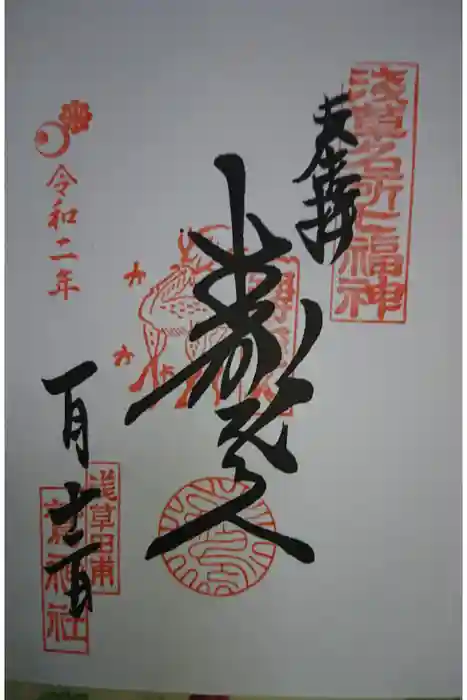 浅草名所七福神
奉拝
壽老人
令和二年
一月
浅草田甫
鷲神社